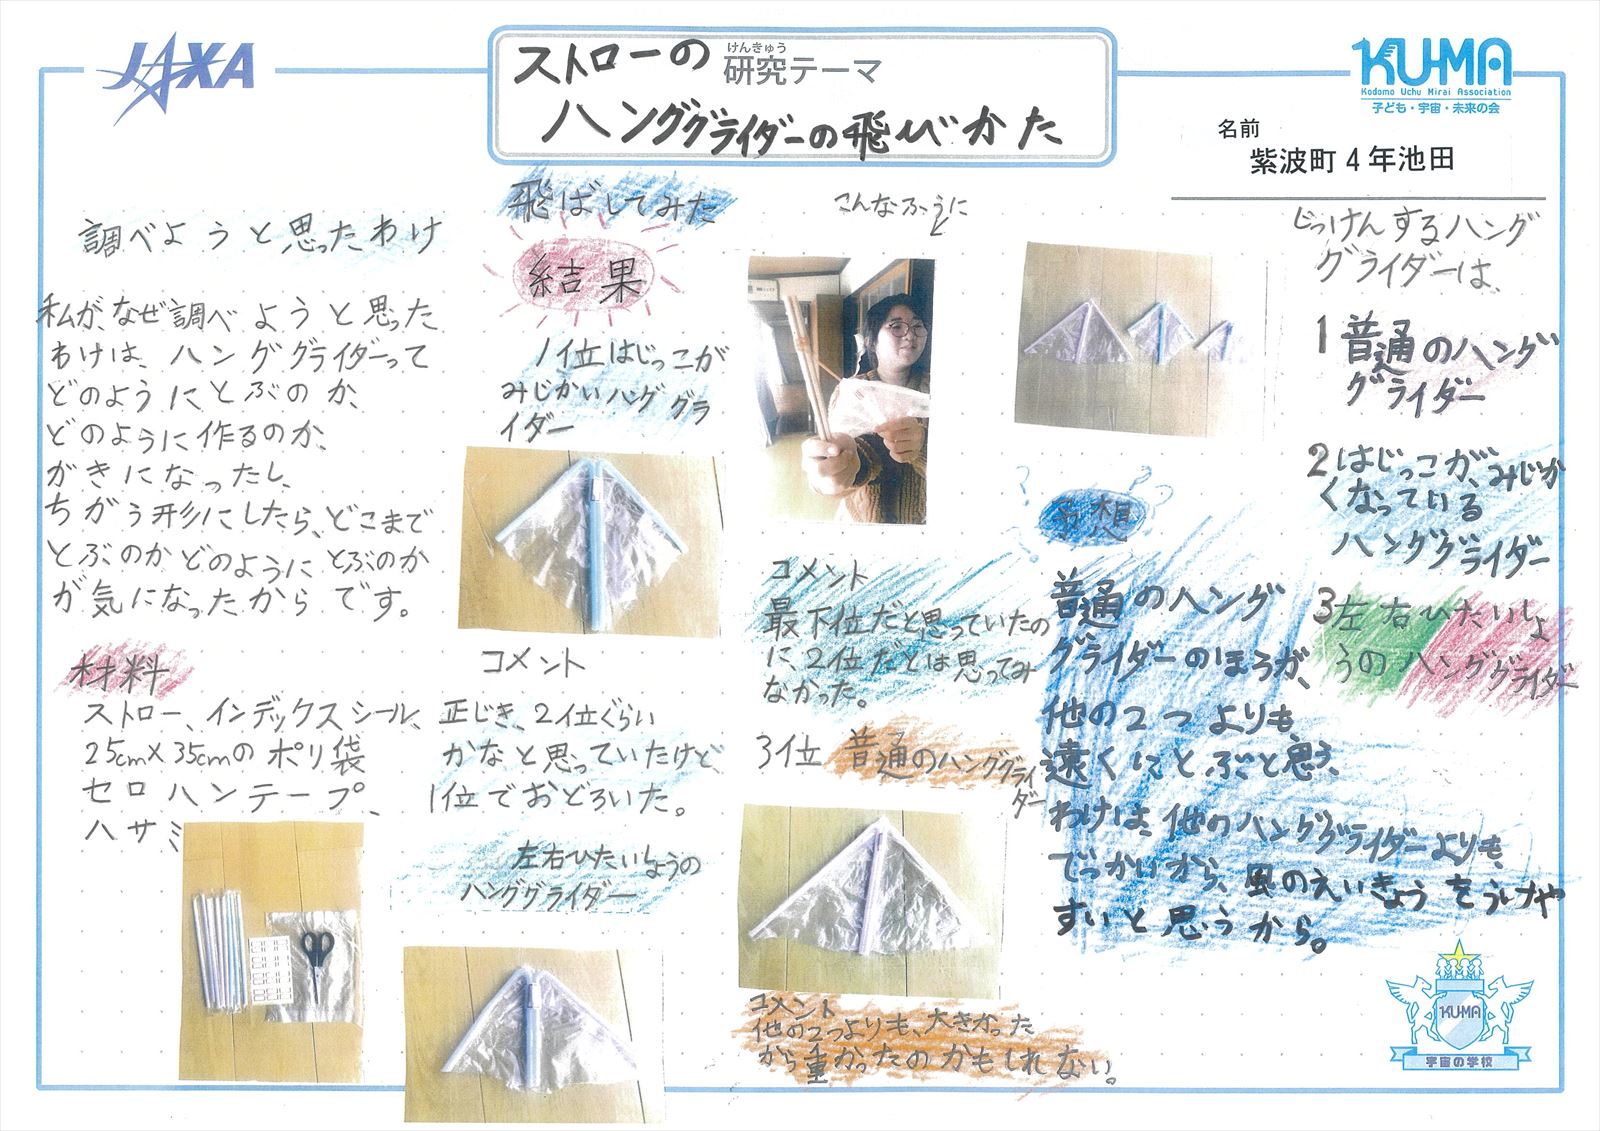 JAXA
ストローの
けんきゅう
研究テーマ
ハンググライダーの飛びかた
KU-MA
Kodomo Uchu Mirai Association
子ども・宇宙・未来の会
名前
紫波町4年池田
調べようと思ったわけ
私が、なぜ調べようと思った
わけは、ハンググライダーって
どのようにとぶのか、
どのように作るのか、
がきになったし、
ちがう形にしたら、どこまで
とぶのかどのようにとぶのか
が気になったからです。
材料
ストロー、インデックスシール、
25cm×35cmのポリ袋
セロハンテープ、
ハサミ
飛ばしてみた
結果
1位はじっこが
みじかいハンググラ
イダー
コメント
正じき、2位ぐらい
かなと思っていたけど、
1位でおどろいた。
左右ひたいしょうの
ハンググライダー
こんなふうに
コメント
最下位だと思っていたの
に、2位だとは思ってみ
なかった。
3位 普通のハンググライ
ダー
コメント
他の2つよりも、大きかった
から重かったのかもしれない。
じっけんするハング
グライダーは、
1 普通のハング
グライダー
2 はじっこが、みじか
くなっている
ハンググライダー
3 左右ひたいしょ
うのハンググライダー
予想
普通のハング
グライダーのほうが、
他の2つよりも、
遠くにとぶと思う、
わけは、他のハンググライダーよりも、
でっかいから、風のえいきょうをうけや
すいと思うから。
KU-MA
宇宙の学校